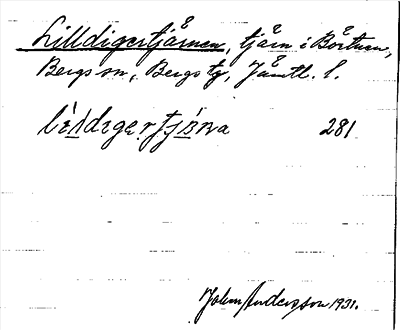 Lilldigertjärnen, tjärn i Börtnen,
Bergs sn, Bergs tg, Jämtl. l.
281
John Andersson 1931.